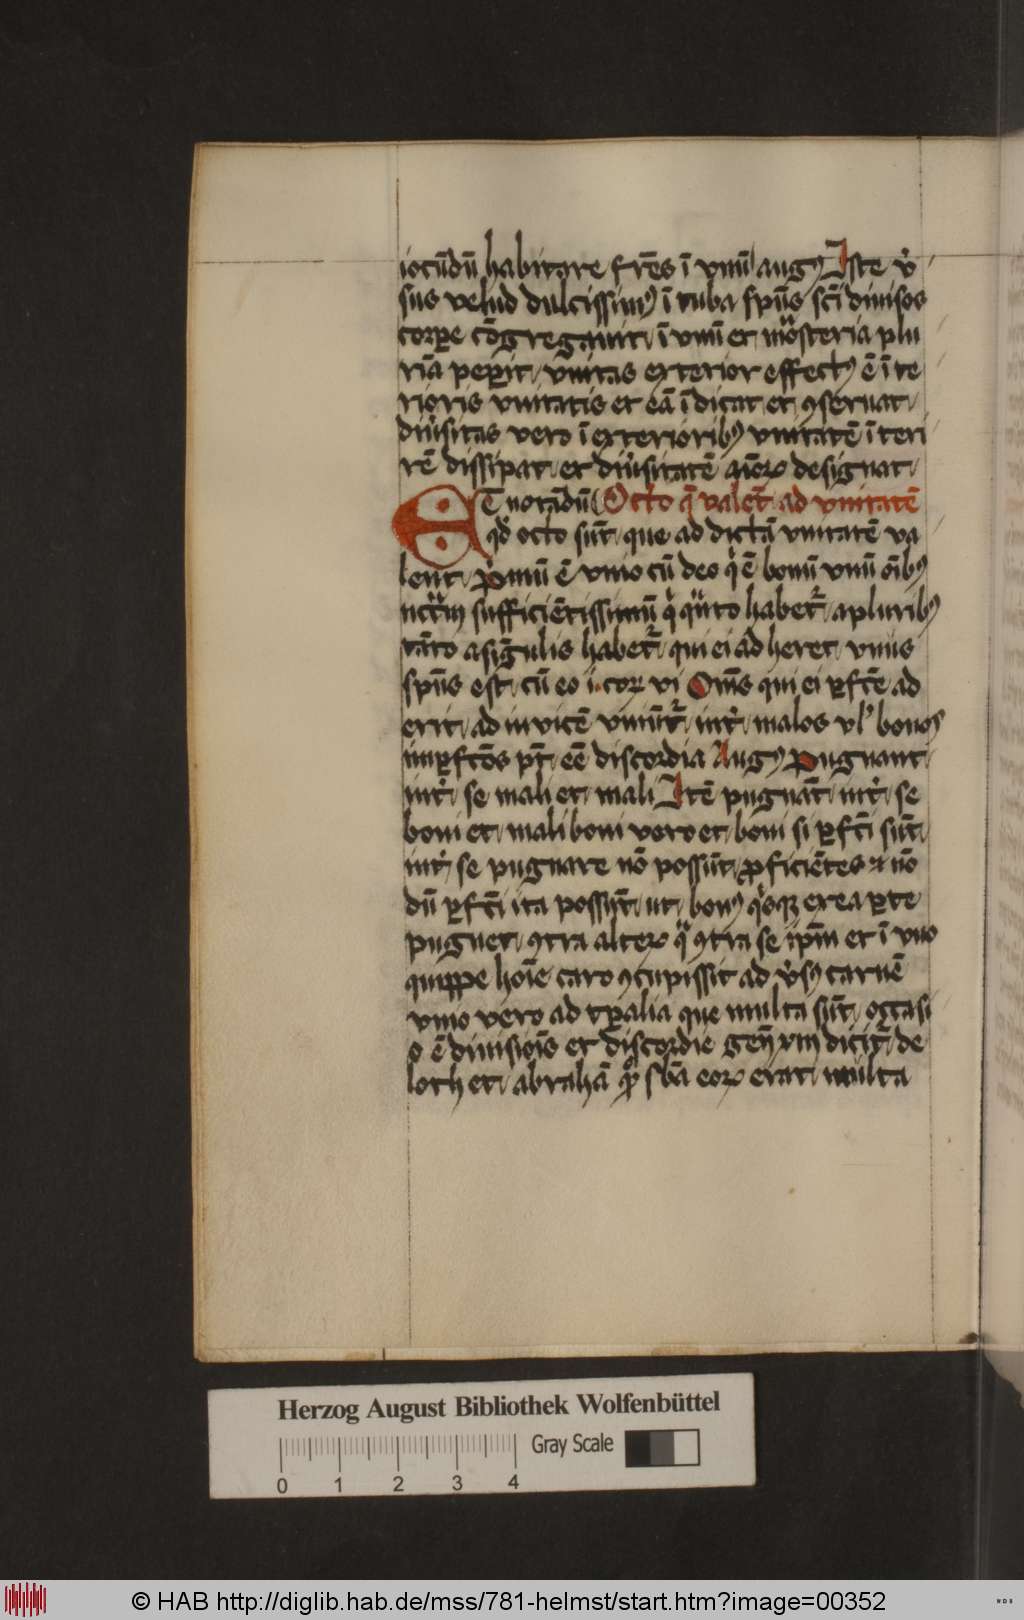 iocūdū habitare frēs ī vnū augꝰ Iste v̓
sus velud dulcissimꝰ ī tuba spūs scī diuisos
corꝑe cōgregauit ī vnū et mōsteria plu
riā peꝑit vnitas exterior effectꝰ ē ī te
rioris vnitatis et eā īdicat et ꝯseruat
diu̓sitas vero ī exterioribꝰ vnitatē ī teri
rē dissipat et diu̓sitatē aīoꝝ designat
ET notādū Octo q̄ valēt ad vnitatē
qd̓ octo sūt que ad dictā vnitatē va
lent p̓mū ē vnio cū deo q̓ ē bonū vnū oībꝰ
sufficiētissimū habet᷑ a pluribꝰ
tāto a sīgulis habet᷑ qui ei adheret vnus
spūs est cū eo i cor vi Om̄s qui ei ꝑfc̄e ad
erit ad inuicē vniūt᷑ int̓ malos vl̓ bonos
imꝑfc̄os pt̄ eē discordia Augꝰ Pugnant
int̓ se mali et mali Itē pugnāt int̓ se
boni et mali boni vero et boni si ꝑfc̄i sūt
int̓ se pugnare nō possūt ꝓficiētes ⁊ nō
dū ꝑfc̄i ita possūt ut bonꝰ q̓sqꝫ ex ea ꝑte
pugnet ꝯtra alteꝝ qͣ ꝯtra se ip̄m et ī vno
quippe hoīe caro ꝯcupissit ad v̓sꝰ carnē
vnio vero ad tꝑalia que multa sūt occasi
o ē diuisiōis et discordie geñ xiii dicit᷑ de
loth et abrahā sb̄a eoꝝ erat multa
Herzog August Bibliothek Wolfenbüttel
Gray Scale
0 1 2 3 4
© HAB http://diglib.hab.de/mss/781-helmst/start.htm?image=00352